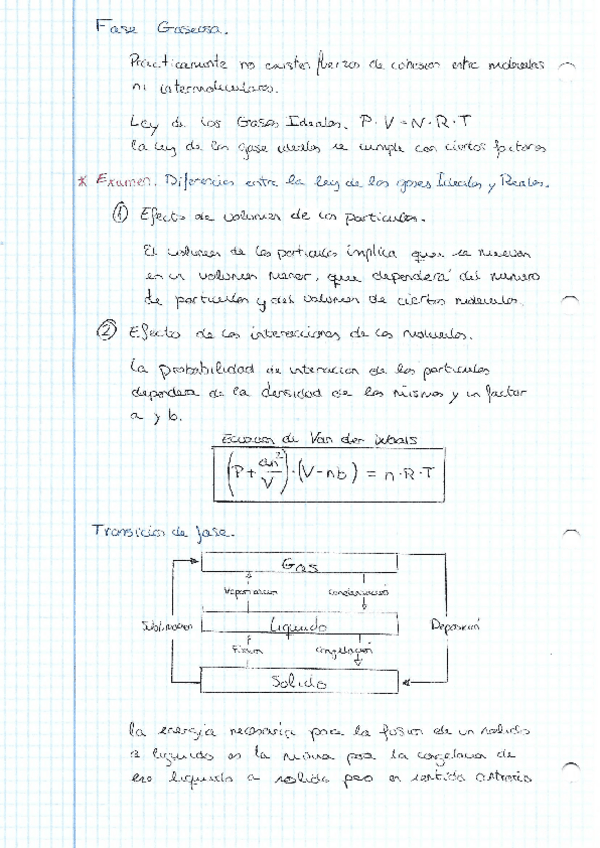 Fase Gaseosa.
Practicamente no existen fuerzas de cohesion entre moleculas
ni intermoleculares.
Ley de los Gases Ideales. P·V=N·R·T
la ley de los gase ideales se cumple con ciertos factores
* Examen. Diferencias entre la ley de los gases Ideales y Reales.
① Efecto de volumen de las particulas.
El volumen de las particulas implica que se mueven
en un volumen menor, que dependerá del numero
de particulas y del volumen de ciertas moleculas.
② Efecto de las interacciones de las moleculas.
la probabilidad de interacion de las particulas
dependera de la densidad de las mismas y un factor
a y b.
Ecuacion de Van der Waals
(P + an²/V)·(V-nb) = n·R·T
Transicion de fase.
Gas
Vaporizacion Condensació
Sublimacion Liquido Deposició
Fusion Congelació
Solido
la energia necesaria para la fusion de un solido
a liquido es la misma para la congelacion de
ese liquido a solido pero en sentido contrario